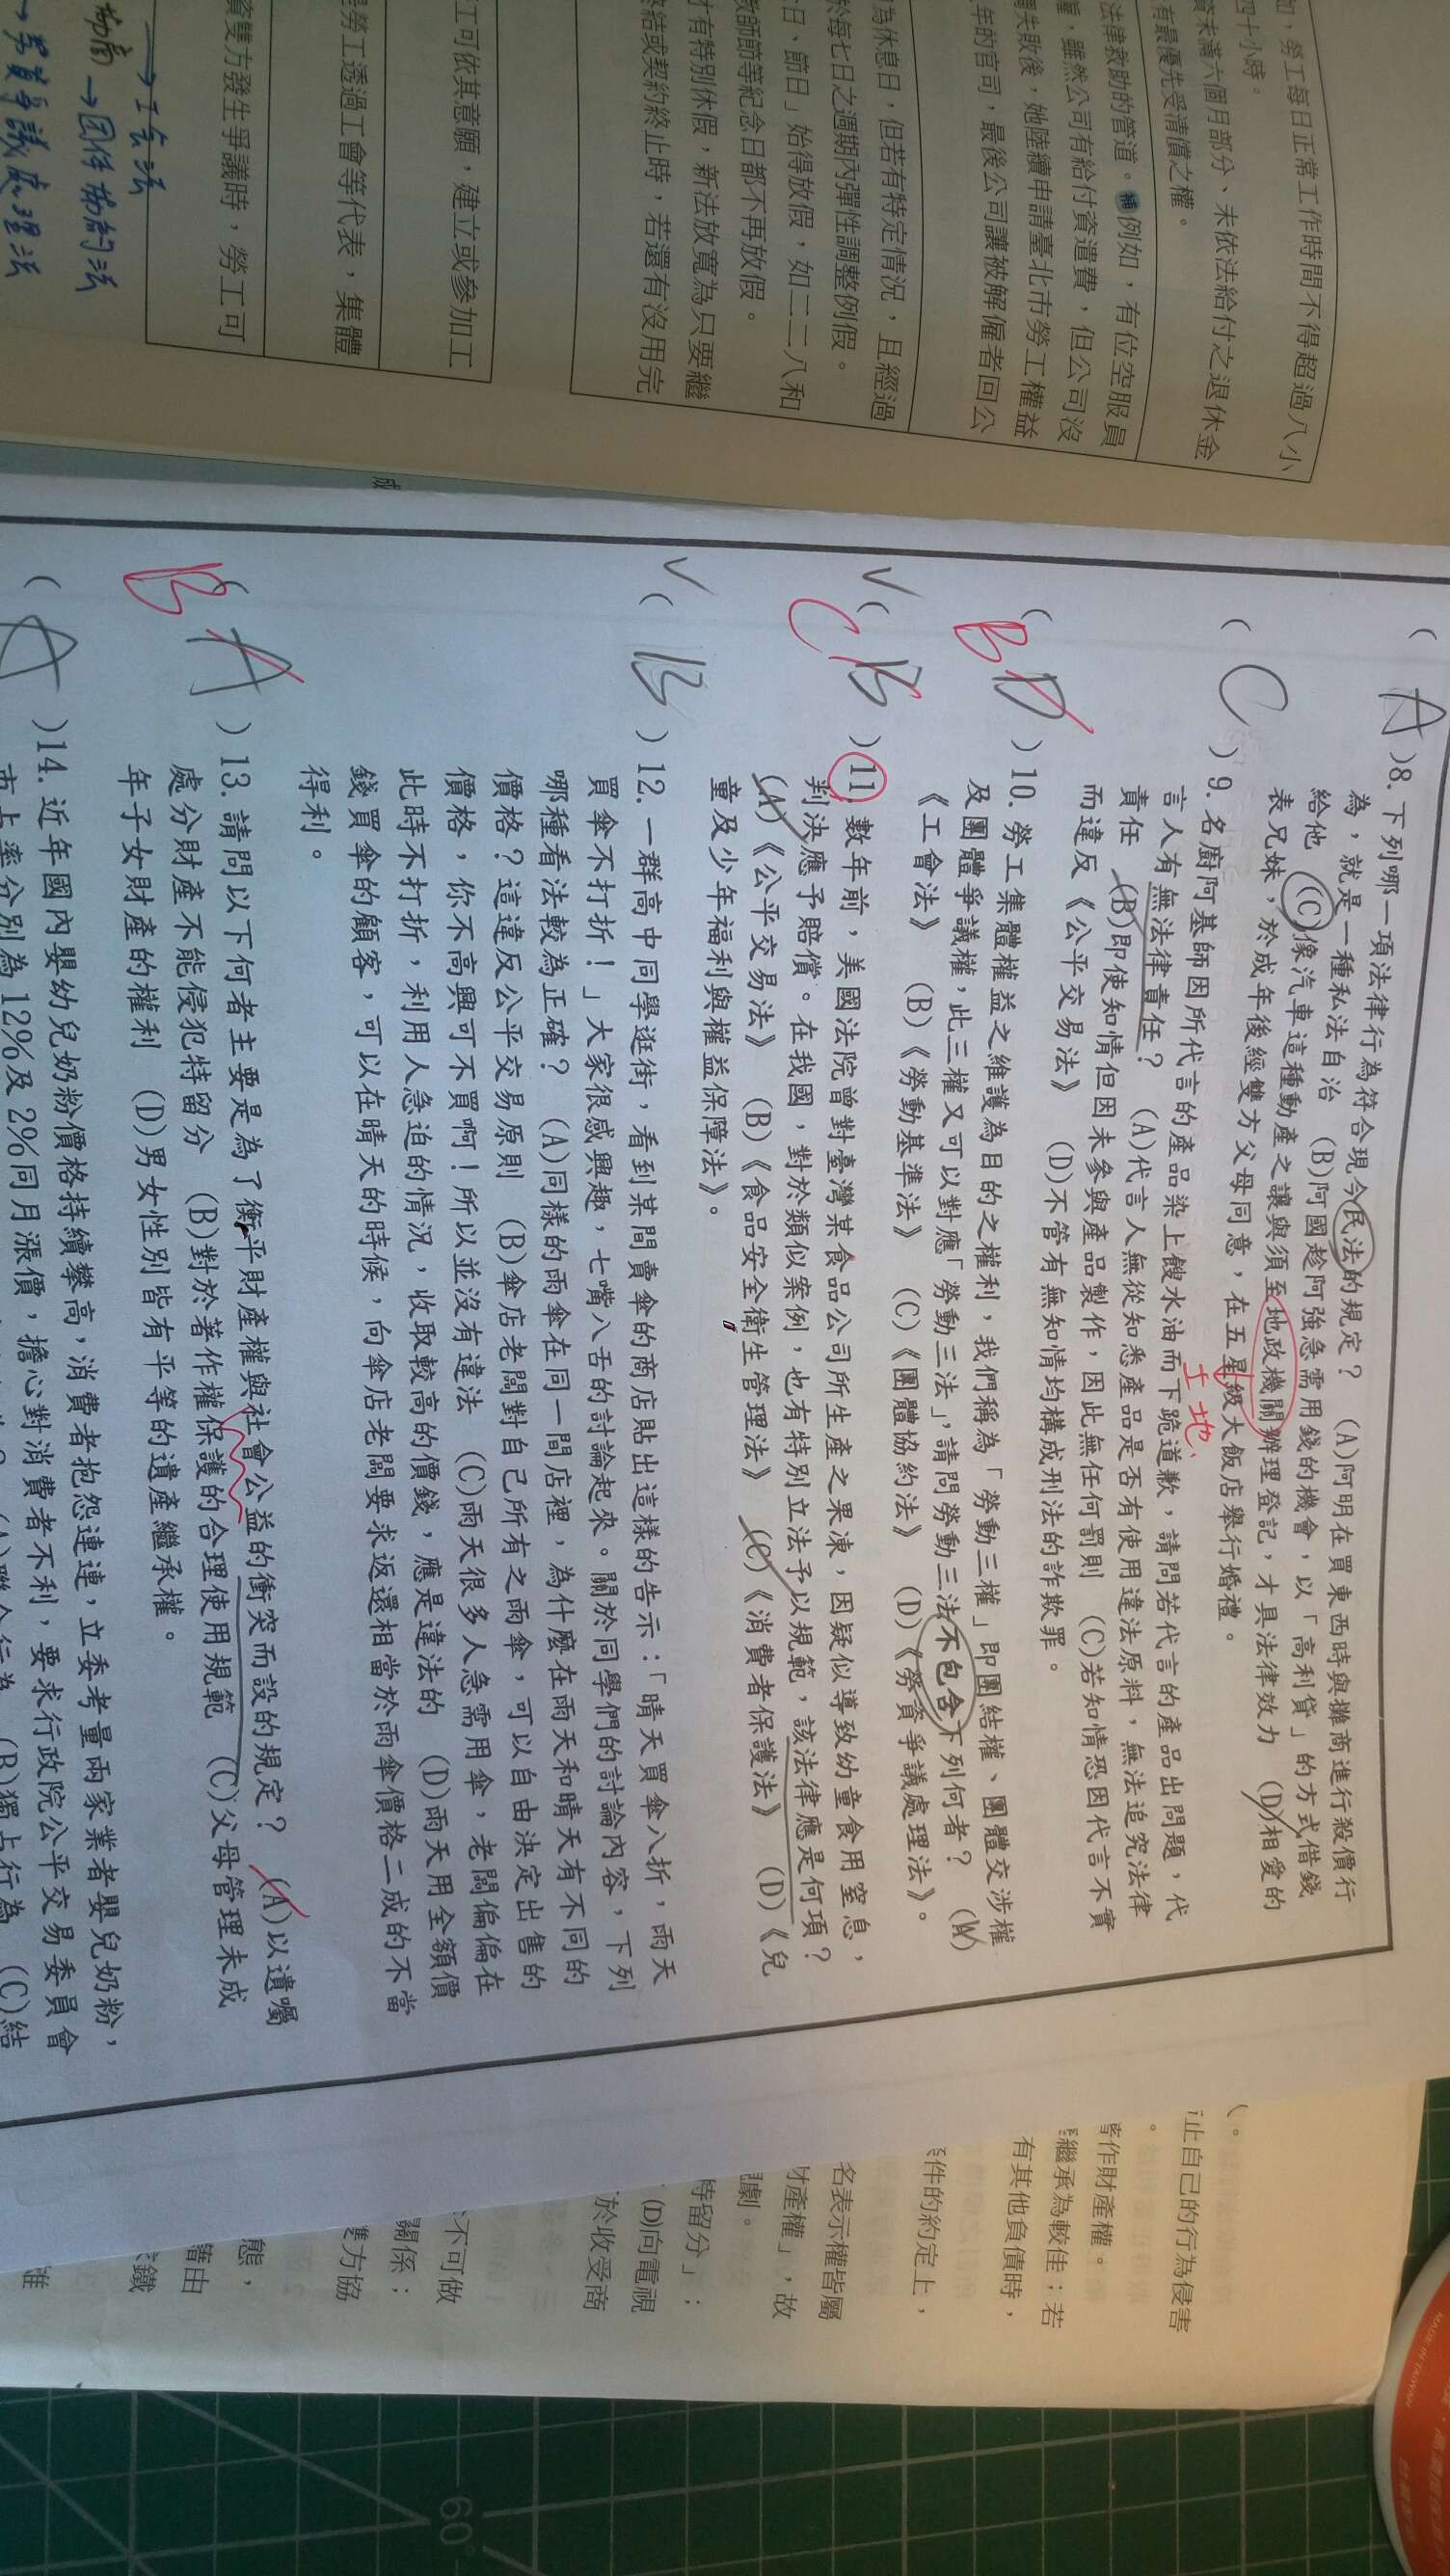 如，勞工每日正常工作時間不得超過八小
四十小時。
資未滿六個月部分、未依法給付之退休金
有最優先受清償之權。
法律救助的管道。補例如，有位空服員
重，雖然公司有給付資遣費，但公司沒
周失敗後，她陸續申請臺北市勞工權益
年的官司，最後公司讓被解僱者回公
為休息日，但若有特定情況，且經過
於每七日之週期內彈性調整例假。
日、節日」始得放假，如二二八和
教師節等紀念日都不再放假。
才有特別休假，新法放寬為只要繼
終結或契約終止時，若還有沒用完
工可依其意願，建立或參加工
是勞工透過工會等代表，集體
資雙方發生爭議時，勞工可
→工会法
協商→团体協約法
→勞資爭議處理法
成
( A )8. 下列哪一項法律行為符合現今民法的規定？ (A)阿明在買東西時與攤商進行殺價行
為，就是一種私法自治 (B)阿國趁阿強急需用錢的機會，以「高利貸」的方式借錢
給他 (C)像汽車這種動產之讓與須至地政機關辦理登記，才具法律效力 (D)相愛的
表兄妹，於成年後經雙方父母同意，在五星級大飯店舉行婚禮。
土地
( C )9. 名廚阿基師因所代言的產品染上餿水油而下跪道歉，請問若代言的產品出問題，代
言人有無法律責任？ (A)代言人無從知悉產品是否有使用違法原料，無法追究法律
責任 (B)即使知情但因未參與產品製作，因此無任何罰則 (C)若知情恐因代言不實
而違反《公平交易法》 (D)不管有無知情均構成刑法的詐欺罪。
( B D )10. 勞工集體權益之維護為目的之權利，我們稱為「勞動三權」即團結權、團體交涉權
及團體爭議權，此三權又可以對應「勞動三法」，請問勞動三法不包含下列何者？ (A)
《工會法》 (B)《勞動基準法》 (C)《團體協約法》 (D)《勞資爭議處理法》。
( C B )11. 數年前，美國法院曾對臺灣某食品公司所生產之果凍，因疑似導致幼童食用窒息，
判決應予賠償。在我國，對於類似案例，也有特別立法予以規範，該法律應是何項？
(A)《公平交易法》 (B)《食品安全衛生管理法》 (C)《消費者保護法》 (D)《兒
童及少年福利與權益保障法》。
( B )12. 一群高中同學逛街，看到某間賣傘的商店貼出這樣的告示：「晴天買傘八折，雨天
買傘不打折！」大家很感興趣，七嘴八舌的討論起來。關於同學們的討論內容，下列
哪種看法較為正確？ (A)同樣的雨傘在同一間店裡，為什麼在雨天和晴天有不同的
價格？這違反公平交易原則 (B)傘店老闆對自己所有之雨傘，可以自由決定出售的
價格，你不高興可不買啊！所以並沒有違法 (C)雨天很多人急需用傘，老闆偏偏在
此時不打折，利用人急迫的情況，收取較高的價錢，應是違法的 (D)雨天用全額價
錢買傘的顧客，可以在晴天的時候，向傘店老闆要求返還相當於雨傘價格二成的不當
得利。
( B A )13. 請問以下何者主要是為了衡平財產權與社會公益的衝突而設的規定？ (A)以遺囑
處分財產不能侵犯特留分 (B)對於著作權保護的合理使用規範 (C)父母管理未成
年子女財產的權利 (D)男女性別皆有平等的遺產繼承權。
( A )14. 近年國內嬰幼兒奶粉價格持續攀高，消費者抱怨連連，立委考量兩家業者嬰兒奶粉，
市占率分別為 12%及 2%同月漲價，擔心對消費者不利，要求行政院公平交易委員會
(A)聯合行為 (B)獨占行為 (C)結
止自己的行為侵害
著作財產權。
繼承為較佳；若
有其他負債時，
條件的約定上，
名表示權皆屬
財產權」，故
戲劇。
特留分」；
(D)向電視
於收受商
不可做
關係；
雙方協
態，
藉由
鐵
60°
MADE IN TAIWAN